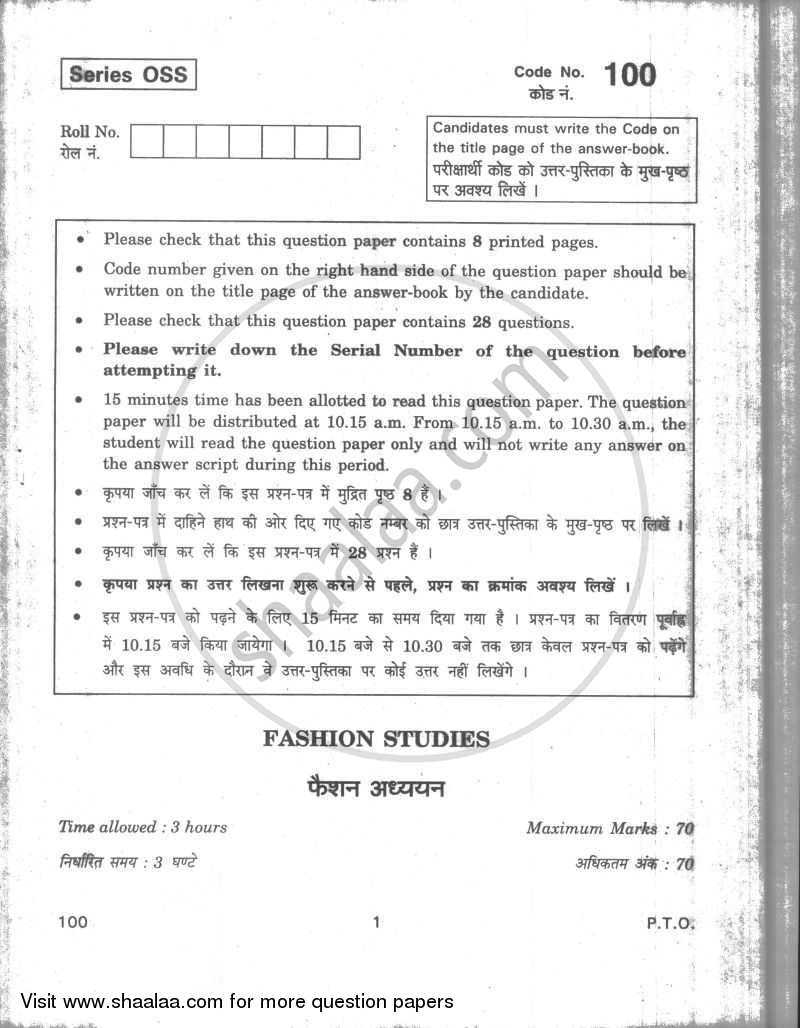 Series OSS
Code No. 100
कोड नं.
Roll No.
रोल नं.
Candidates must write the Code on
the title page of the answer-book.
परीक्षार्थी कोड को उत्तर-पुस्तिका के मुख-पृष्ठ
पर अवश्य लिखें ।
• Please check that this question paper contains 8 printed pages.
• Code number given on the right hand side of the question paper should be
written on the title page of the answer-book by the candidate.
• Please check that this question paper contains 28 questions.
• Please write down the Serial Number of the question before
attempting it.
• 15 minutes time has been allotted to read this question paper. The question
paper will be distributed at 10.15 a.m. From 10.15 a.m. to 10.30 a.m., the
student will read the question paper only and will not write any answer on
the answer script during this period.
• कृपया जाँच कर लें कि इस प्रश्न-पत्र में मुद्रित पृष्ठ 8 हैं ।
• प्रश्न-पत्र में दाहिने हाथ की ओर दिए गए कोड नम्बर को छात्र उत्तर-पुस्तिका के मुख-पृष्ठ पर लिखें ।
• कृपया जाँच कर लें कि इस प्रश्न-पत्र में 28 प्रश्न हैं ।
• कृपया प्रश्न का उत्तर लिखना शुरू करने से पहले, प्रश्न का क्रमांक अवश्य लिखें ।
• इस प्रश्न-पत्र को पढ़ने के लिए 15 मिनट का समय दिया गया है । प्रश्न-पत्र का वितरण पूर्वाह्न
में 10.15 बजे किया जायेगा । 10.15 बजे से 10.30 बजे तक छात्र केवल प्रश्न-पत्र को पढ़ेंगे
और इस अवधि के दौरान वे उत्तर-पुस्तिका पर कोई उत्तर नहीं लिखेंगे ।
shaalaa.com
FASHION STUDIES
फैशन अध्ययन
Time allowed : 3 hours
Maximum Marks : 70
निर्धारित समय : 3 घण्टे
अधिकतम अंक : 70
100
1
P.T.O.
Visit www.shaalaa.com for more question papers